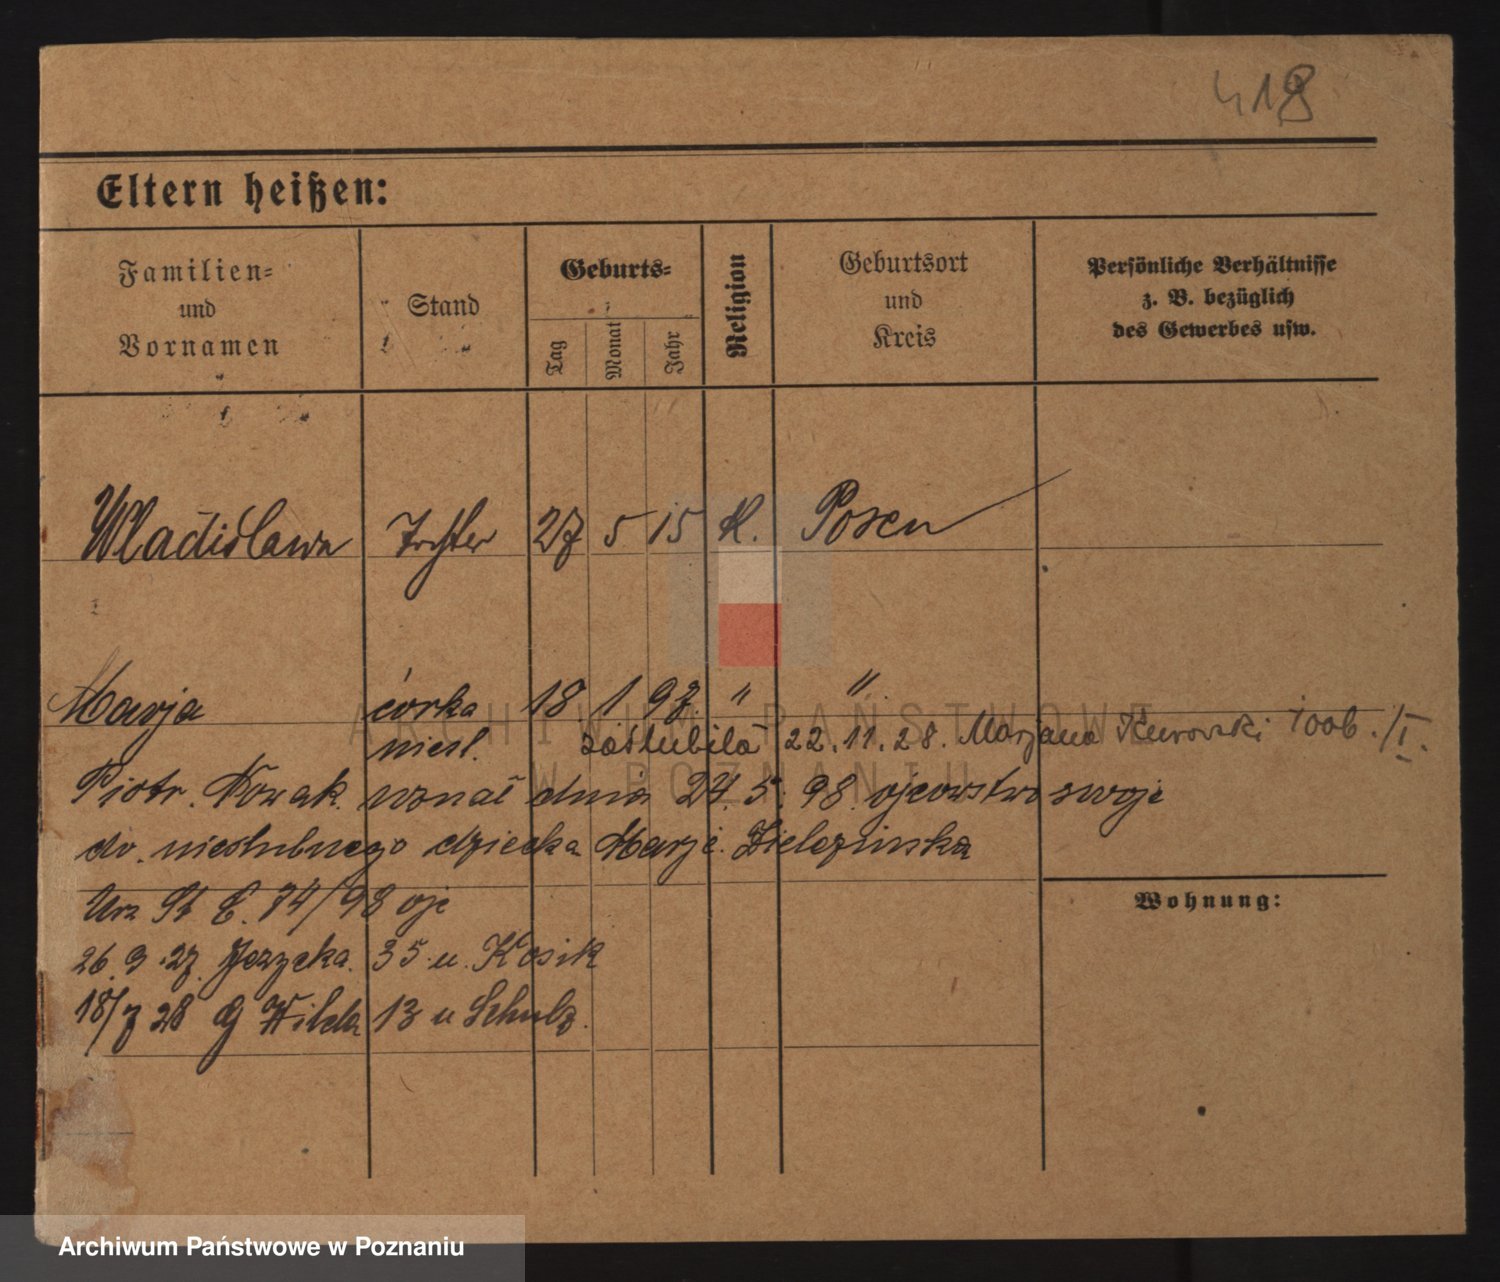 418
Eltern heißen:
Familien- und Vornamen
Stand
Geburts-
Tag
Monat
Jahr
Religion
Geburtsort und Kreis
Persönliche Verhältnisse z. B. bezüglich des Gewerbes usw.
Wladislawa Tochter 27 5 15 K. Posen
Marja córka 18 1 97 " "
nieśl. zaślubiła 22.11.28. Marjana Kurowski
Piotr Nowak uznał dnia 24.5.98 ojcowstwo swoje
do nieślubnego dziecka Marje Zielezinska
Urz St C. 74/98
Wohnung:
26.9.27. Jezycka 35 u. Kosik
18/7 28 G Wilda 13 u Schulz.
ARCHIWUM PAŃSTWOWE
W POZNANIU
Archiwum Państwowe w Poznaniu